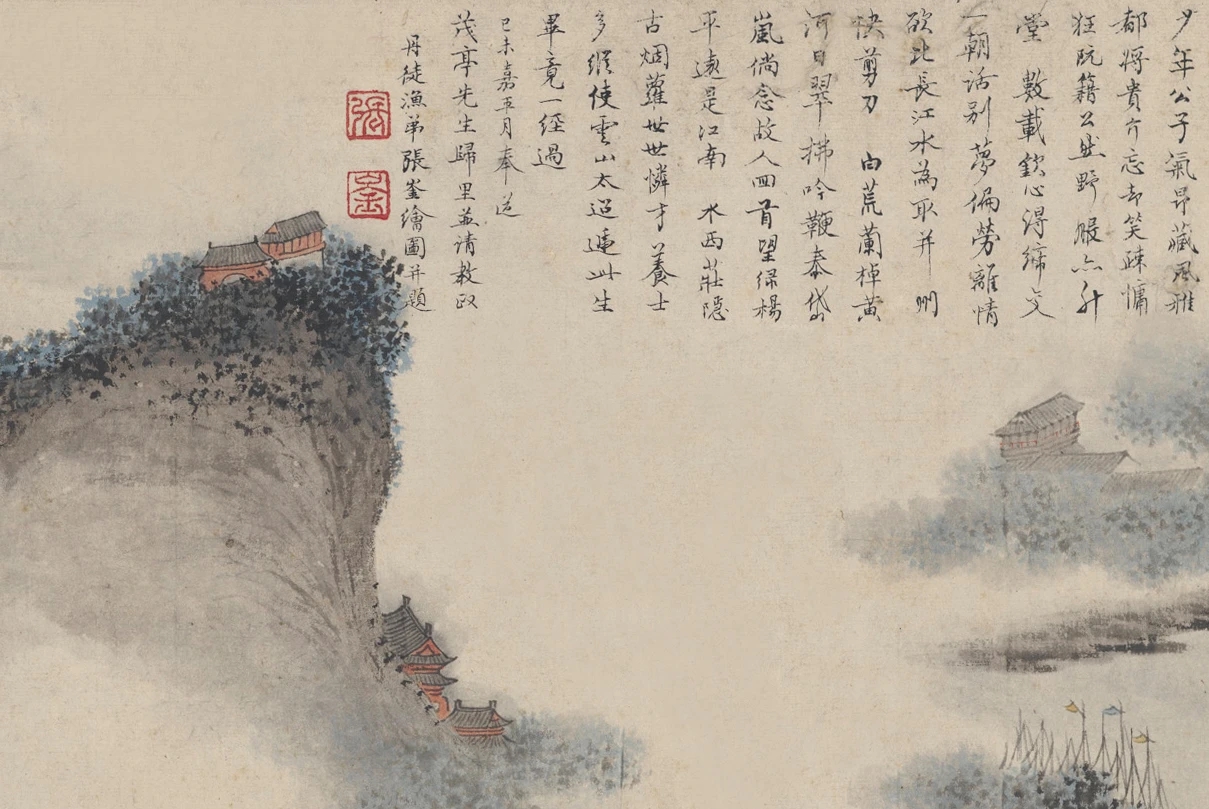 少年公子氣昂藏風雅
都將貴介忘却笑疎慵
狂阮籍公然野服亦升
堂 數載欽心得締交
一朝話别夢偏勞離情
欲比長江水為取并州
快剪刀 白荒蘭棹黄
河日翠拂吟鞭泰岱
嵐倘念故人回首望緑楊
平遠是江南 水西莊隱
古烟蘿世世憐才養士
多縱使雲山太迢遞此生
畢竟一經過
己未嘉平月奉送
茂亭先生歸里並請教政
丹徒漁弟張崟繪圖并題
張
崟